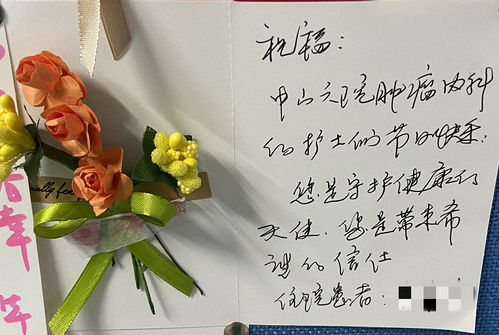 祝福:
中山六院肿瘤内科
的护士们节日快乐:
您是守护健康的
天使,您是带来希
望的信使
住院患者:
ially for
幸